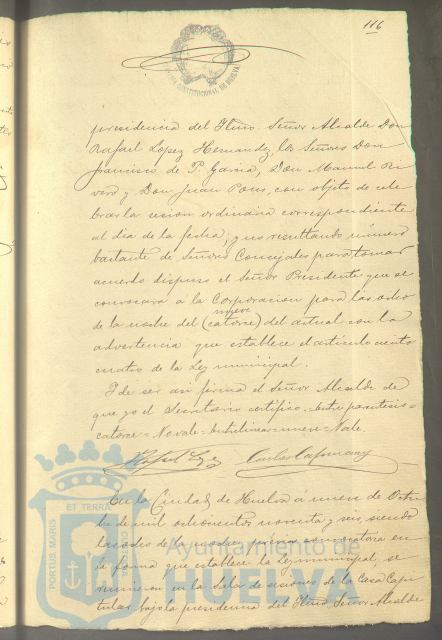 116
presidencia del Iltmo Señor Alcalde Don
Rafael Lopez Hernandez, los Señores Don
Francisco de P. Garcia, Don Manuel Ri
vero y Don Juan Pons, con objeto de cele
brar la sesion ordinaria correspondiente
al dia de la fecha; y no resultando número
bastante de Señores Concejales para tomar
acuerdo dispuso el Señor Presidente que se
convocara á la Corporacion para las ocho
nueve
de la noche del (catorce) del actual con la
advertencia que establece el artículo ciento
cuatro de la Ley municipal.
Y de ser asi firma el Señor Alcalde de
que yo el Secretario certifico.=Entre parentesis=
catorce=No vale=Entrelineas=nueve=Vale.
En la Ciudad de Huelva á nueve de Octu
bre de mil ochocientos noventa y seis, siendo
las ocho de la noche, previa convocatoria en
la forma que establece la Ley municipal, se
reunieron en la Sala de sesiones de la Casa Capi
tular bajo la presidencia del Iltmo Señor Alcalde
PORTUS MARIS ET TERRAE CUSTODIA
Ayuntamiento de
HUELVA